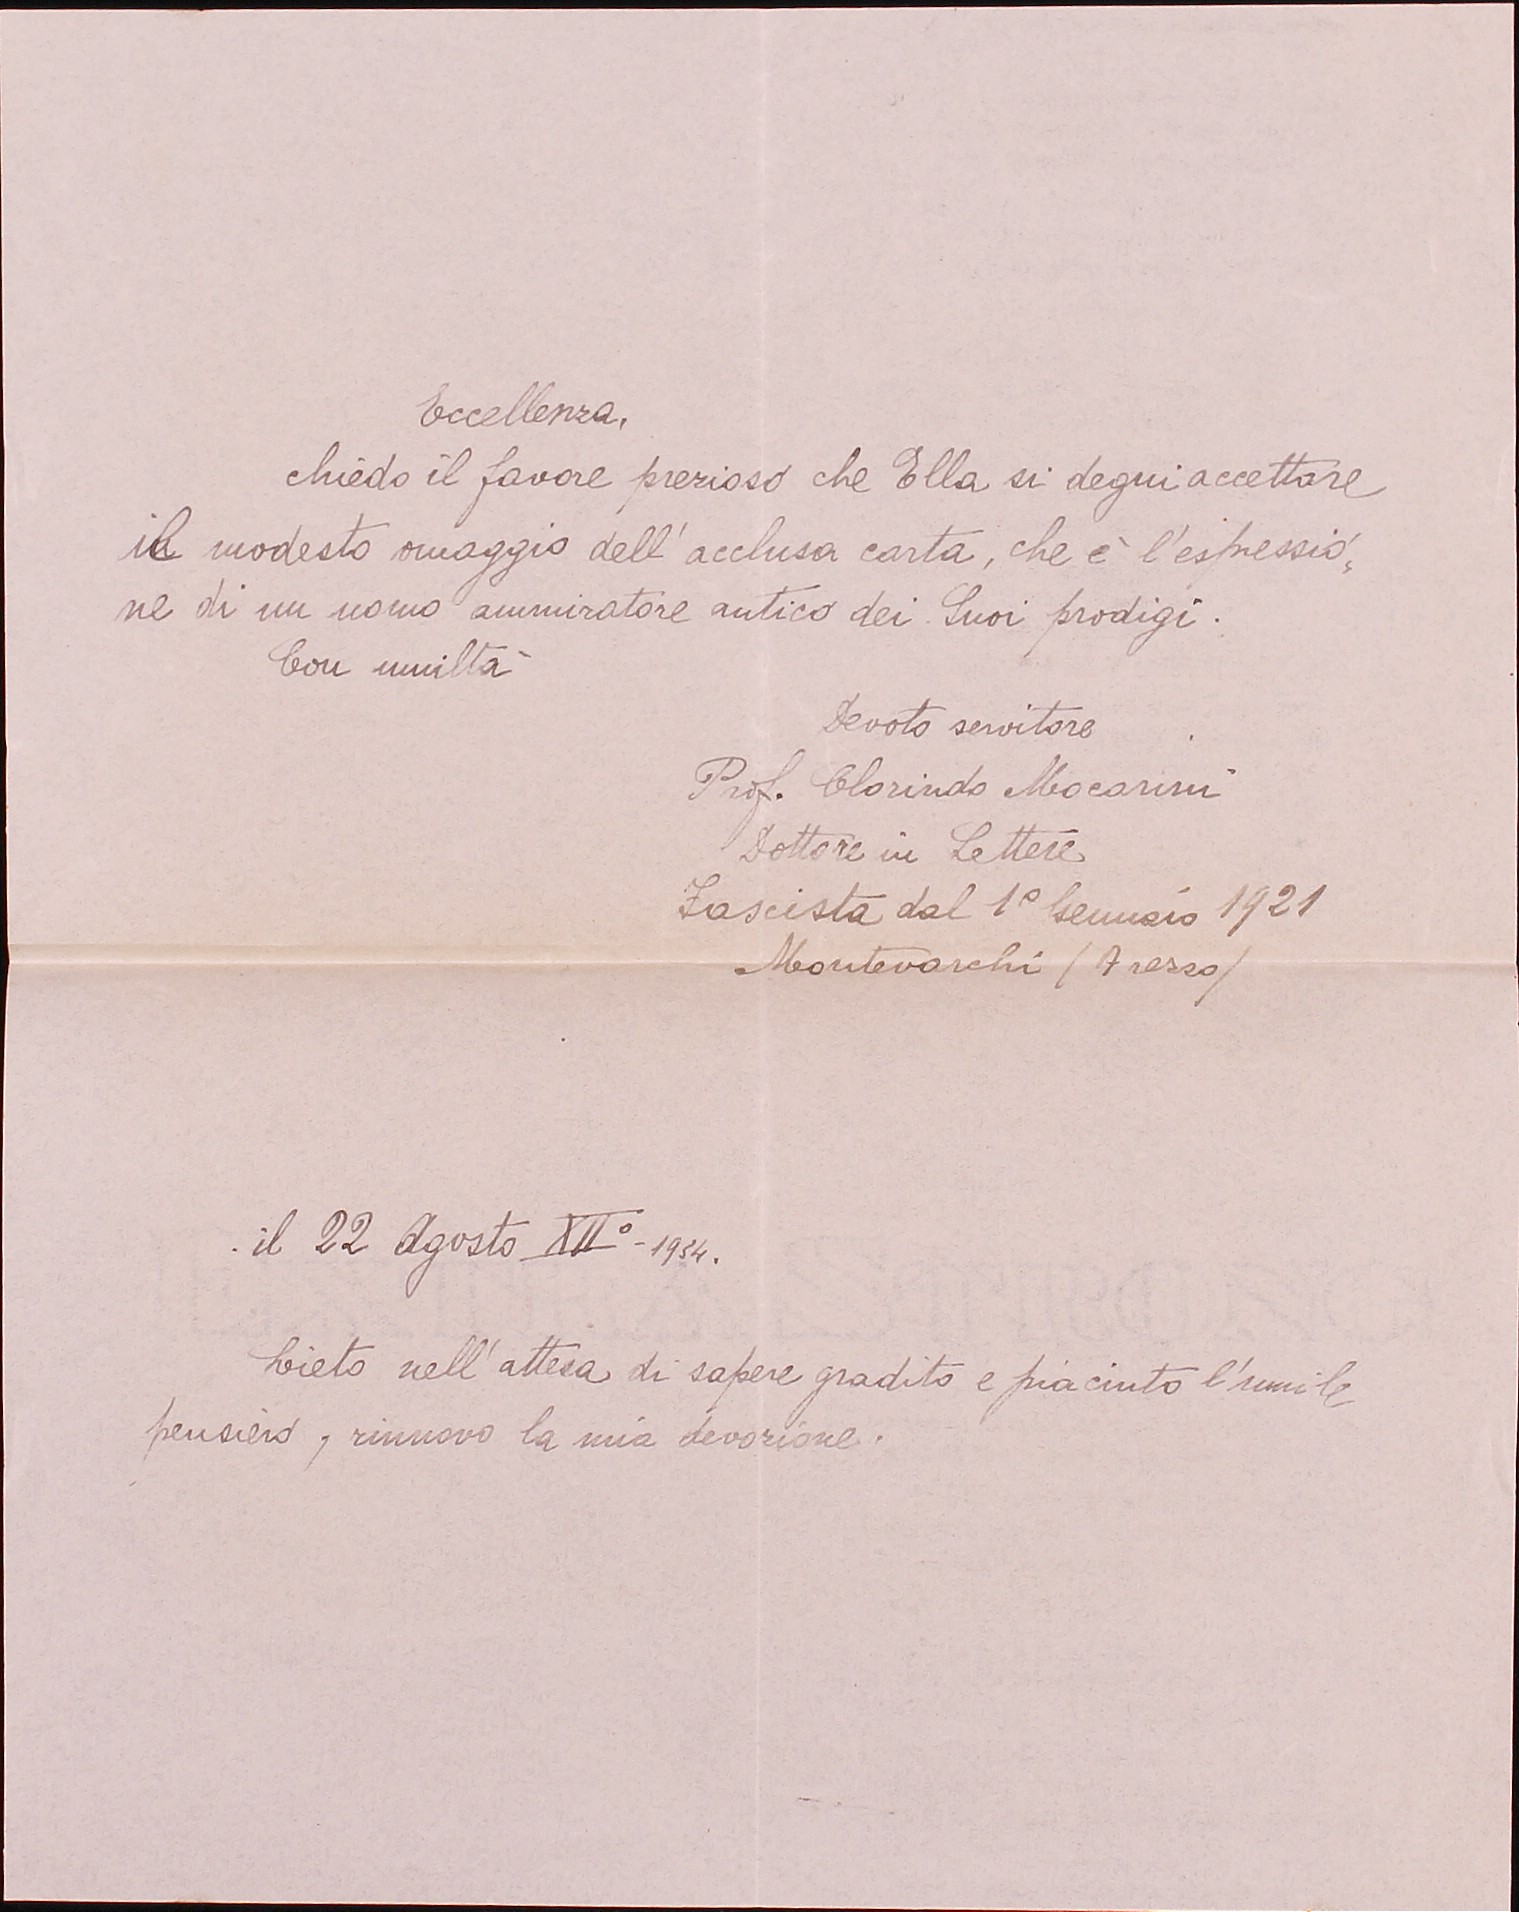 Eccellenza,
chiedo il favore prezioso che Ella si degni accettare
il modesto omaggio dell'acclusa carta, che è l'espressio„
ne di un uomo ammiratore antico dei Suoi prodigi.
Con umiltà
Devoto servitore
Prof. Clorindo Mocarini
Dottore in Lettere
Fascista dal 1° Gennaio 1921
Montevarchi (Arezzo)
il 22 Agosto XII° - 1934.
Lieto nell'attesa di sapere gradito e piaciuto l'umile
pensiero, rinnovo la mia devozione.